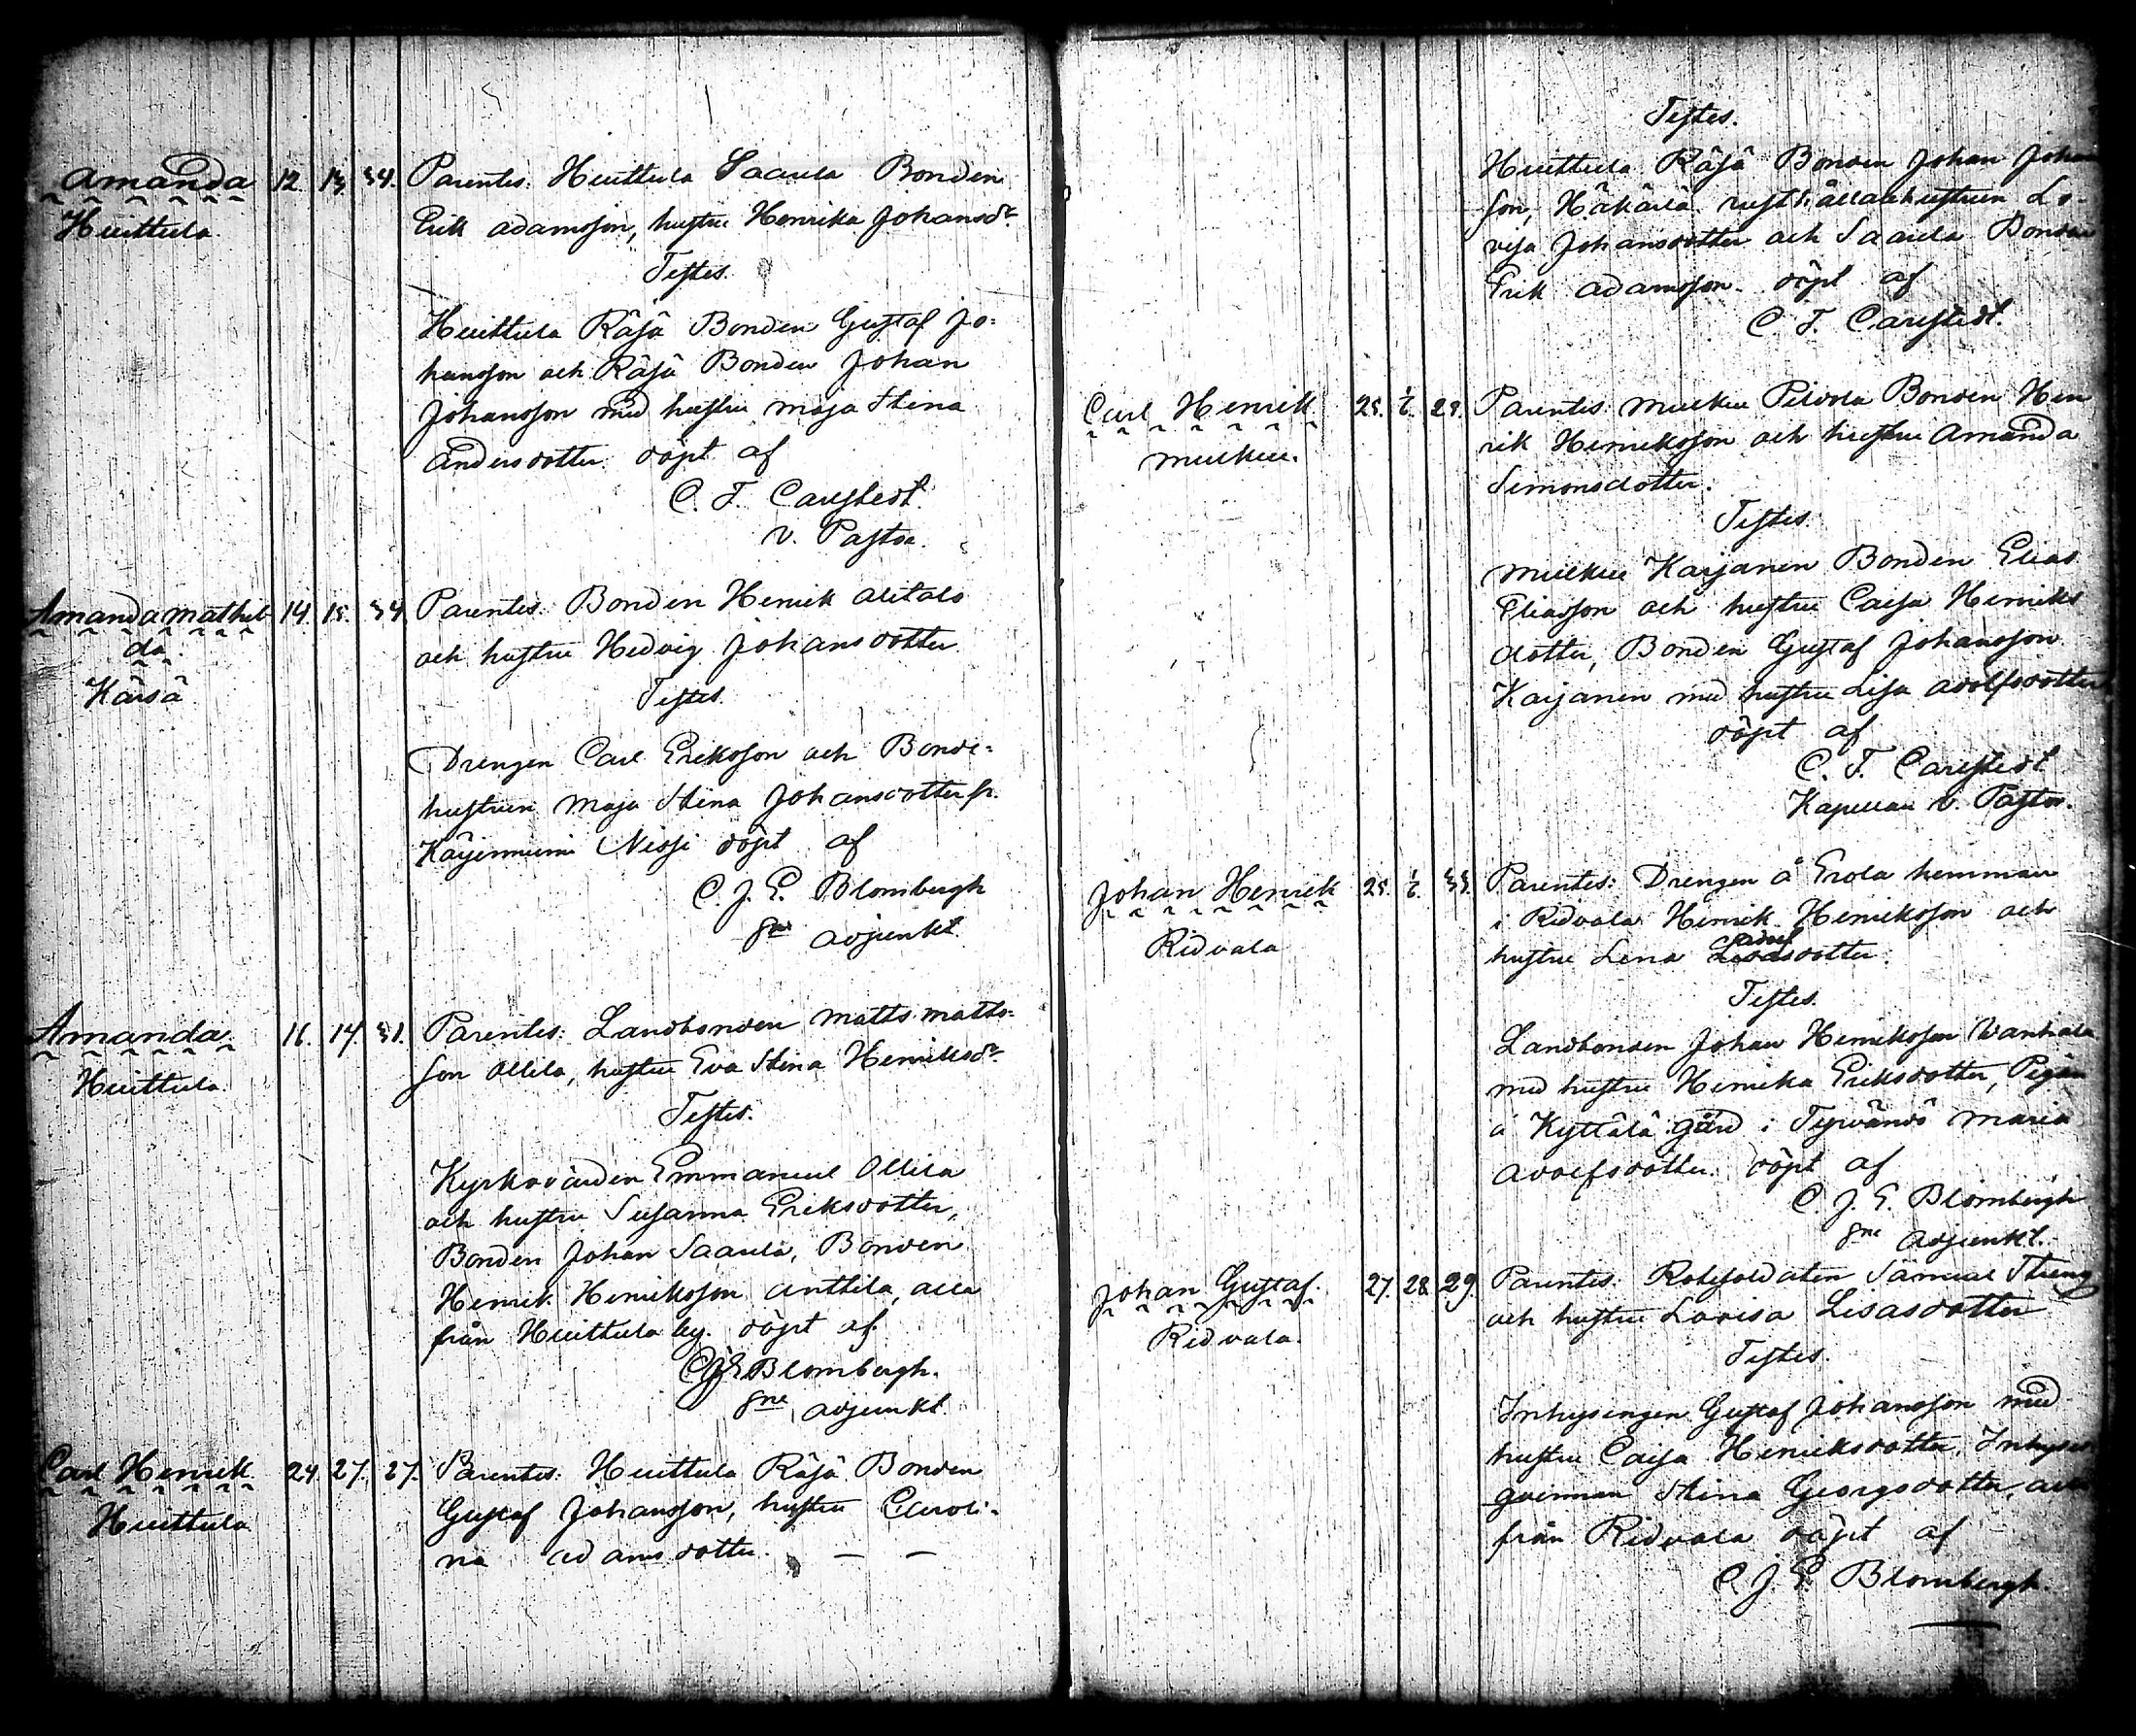 Amanda 12. 13. 34. Parentes: Huittula Saarela Bonden
Huittula. Erik Adamsson, hustru Henrika Johansdr
Testes.
Huittula Räsä Bonden Gustaf Jo-
hansson och Räsä Bonden Johan
Johansson med hustru Maja Stina
Andersdotter. döpt af
C. F. Carlstedt.
v. Pastor.
Amanda Mathil- 14. 15. 34. Parentes: Bonden Henrik Alitalo
da. och hustru Hedvig Johansdotter
Kärsä Testes.
Drengen Carl Eriksson och Bonde-
hustrun Maja Stina Johansdotter fr.
Käjenniemi döpt af
C. J. E. Blombergh
adjunkt.
Amanda. 16. 17. 31. Parentes: Landbonden Matts Matts-
Huittula. son Ollila, hustru Eva Stina Henriksdr
Testes.
Kyrkovärden Emmanuel Ollila
och hustru Susanna Eriksdotter,
Bonden Johan Saarela, Bonden
Henrik Henriksson Anttila, alla
från Huittula by. döpt af
C J E Blombergh.
adjunkt
Carl Henrik 24. 27. 27. Parentes: Huittula Räsä Bonden
Huittula Gustaf Johansson, hustru Caroli-
na Adamsdotter. — —
Testes.
Huittula Räsä Bonden Johan Johan
son, Häkärlä rusthållarehustrun Lo-
visa Johansdotter och Saarela Bonden
Erik Adamsson. döpt af
C F. Carlstedt.
Carl Henrik 25. 29. Parentes: Mulkku Bonden Hen
Mulkku. rik Henriksson och hustru Amanda
Simonsdotter.
Testes.
Mulkku Karjanen Bonden Elias
Eliasson och hustru Caisa Henriks
dotter, Bonden Gustaf Johansson
Karjanen med hustru Lisa Adolfsdotter
döpt af
C. F. Carlstedt
Kapellan v. Pastor.
Johan Henrik 25. 33. Parentes: Drengen å Erola hemman
Ridvala i Ridvala Henrik Henriksson och
hustru Lena Adolfsdotter.
Testes.
Landbonden Johan Henriksson Wanhala
med hustru Henrika Eriksdotter, Pigan
å Kyttälä gård i Tyrvändö Maria
Adolfsdotter. döpt af
C. J. E. Blombergh
adjunkt.
Johan Gustaf. 27. 28. 29. Parentes: Rotesoldaten Samuel Streng
Ridvala. och hustru Lovisa Lisasdotter
Testes.
Inhysingen Gustaf Johansson med
hustru Caisa Henriksdotter, Inhyses
qvinnan Stina Georgsdotter, alla
från Ridvala döpt af
C. J. E. Blombergh.